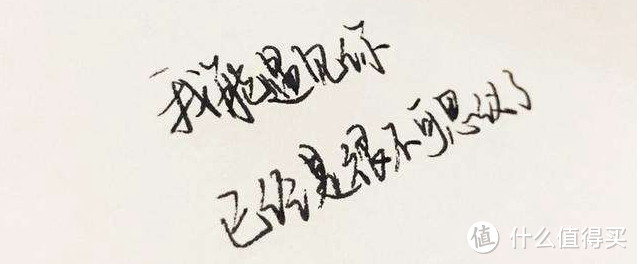 我能遇见你
已经是很不可思议了
值 什么值得买